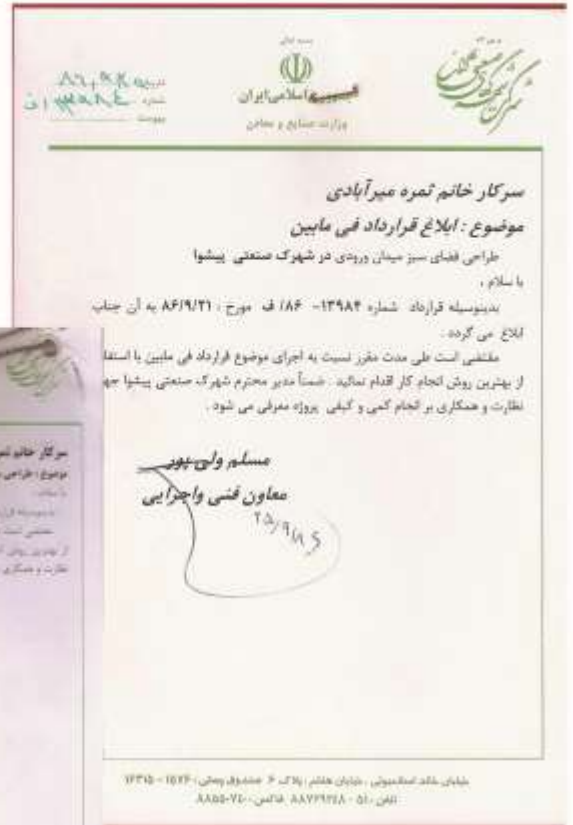 بسمه تعالی
جمهوری اسلامی ایران
وزارت صنایع و معادن
تاریخ
شماره ۱۳۹۸٤ / ف
پیوست
سرکار خانم ثمره میرآبادی
موضوع : ابلاغ قرارداد فی مابین
طراحی فضای سبز میدان ورودی در شهرک صنعتی پیشوا
با سلام ،
بدینوسیله قرارداد شماره ۱۳۹۸۴- ۸۶/ ف مورخ : ۸۶/۹/۲۱ به آن جناب
ابلاغ می گردد .
مقتضی است طی مدت مقرر نسبت به اجرای موضوع قرارداد فی مابین با استفا
از بهترین روش انجام کار اقدام نمائید . ضمناً مدیر محترم شهرک صنعتی پیشوا جه
نظارت و همکاری بر انجام کمی و کیفی پروژه معرفی می شود .
مسلم ولی پور
معاون فنی واجرایی
۲۵/۹/۸۶
سرکار خانم ثمر
موضوع : طراحی
با سلام ،
مقتضی است
از بهترین روش
نظارت و همکاری